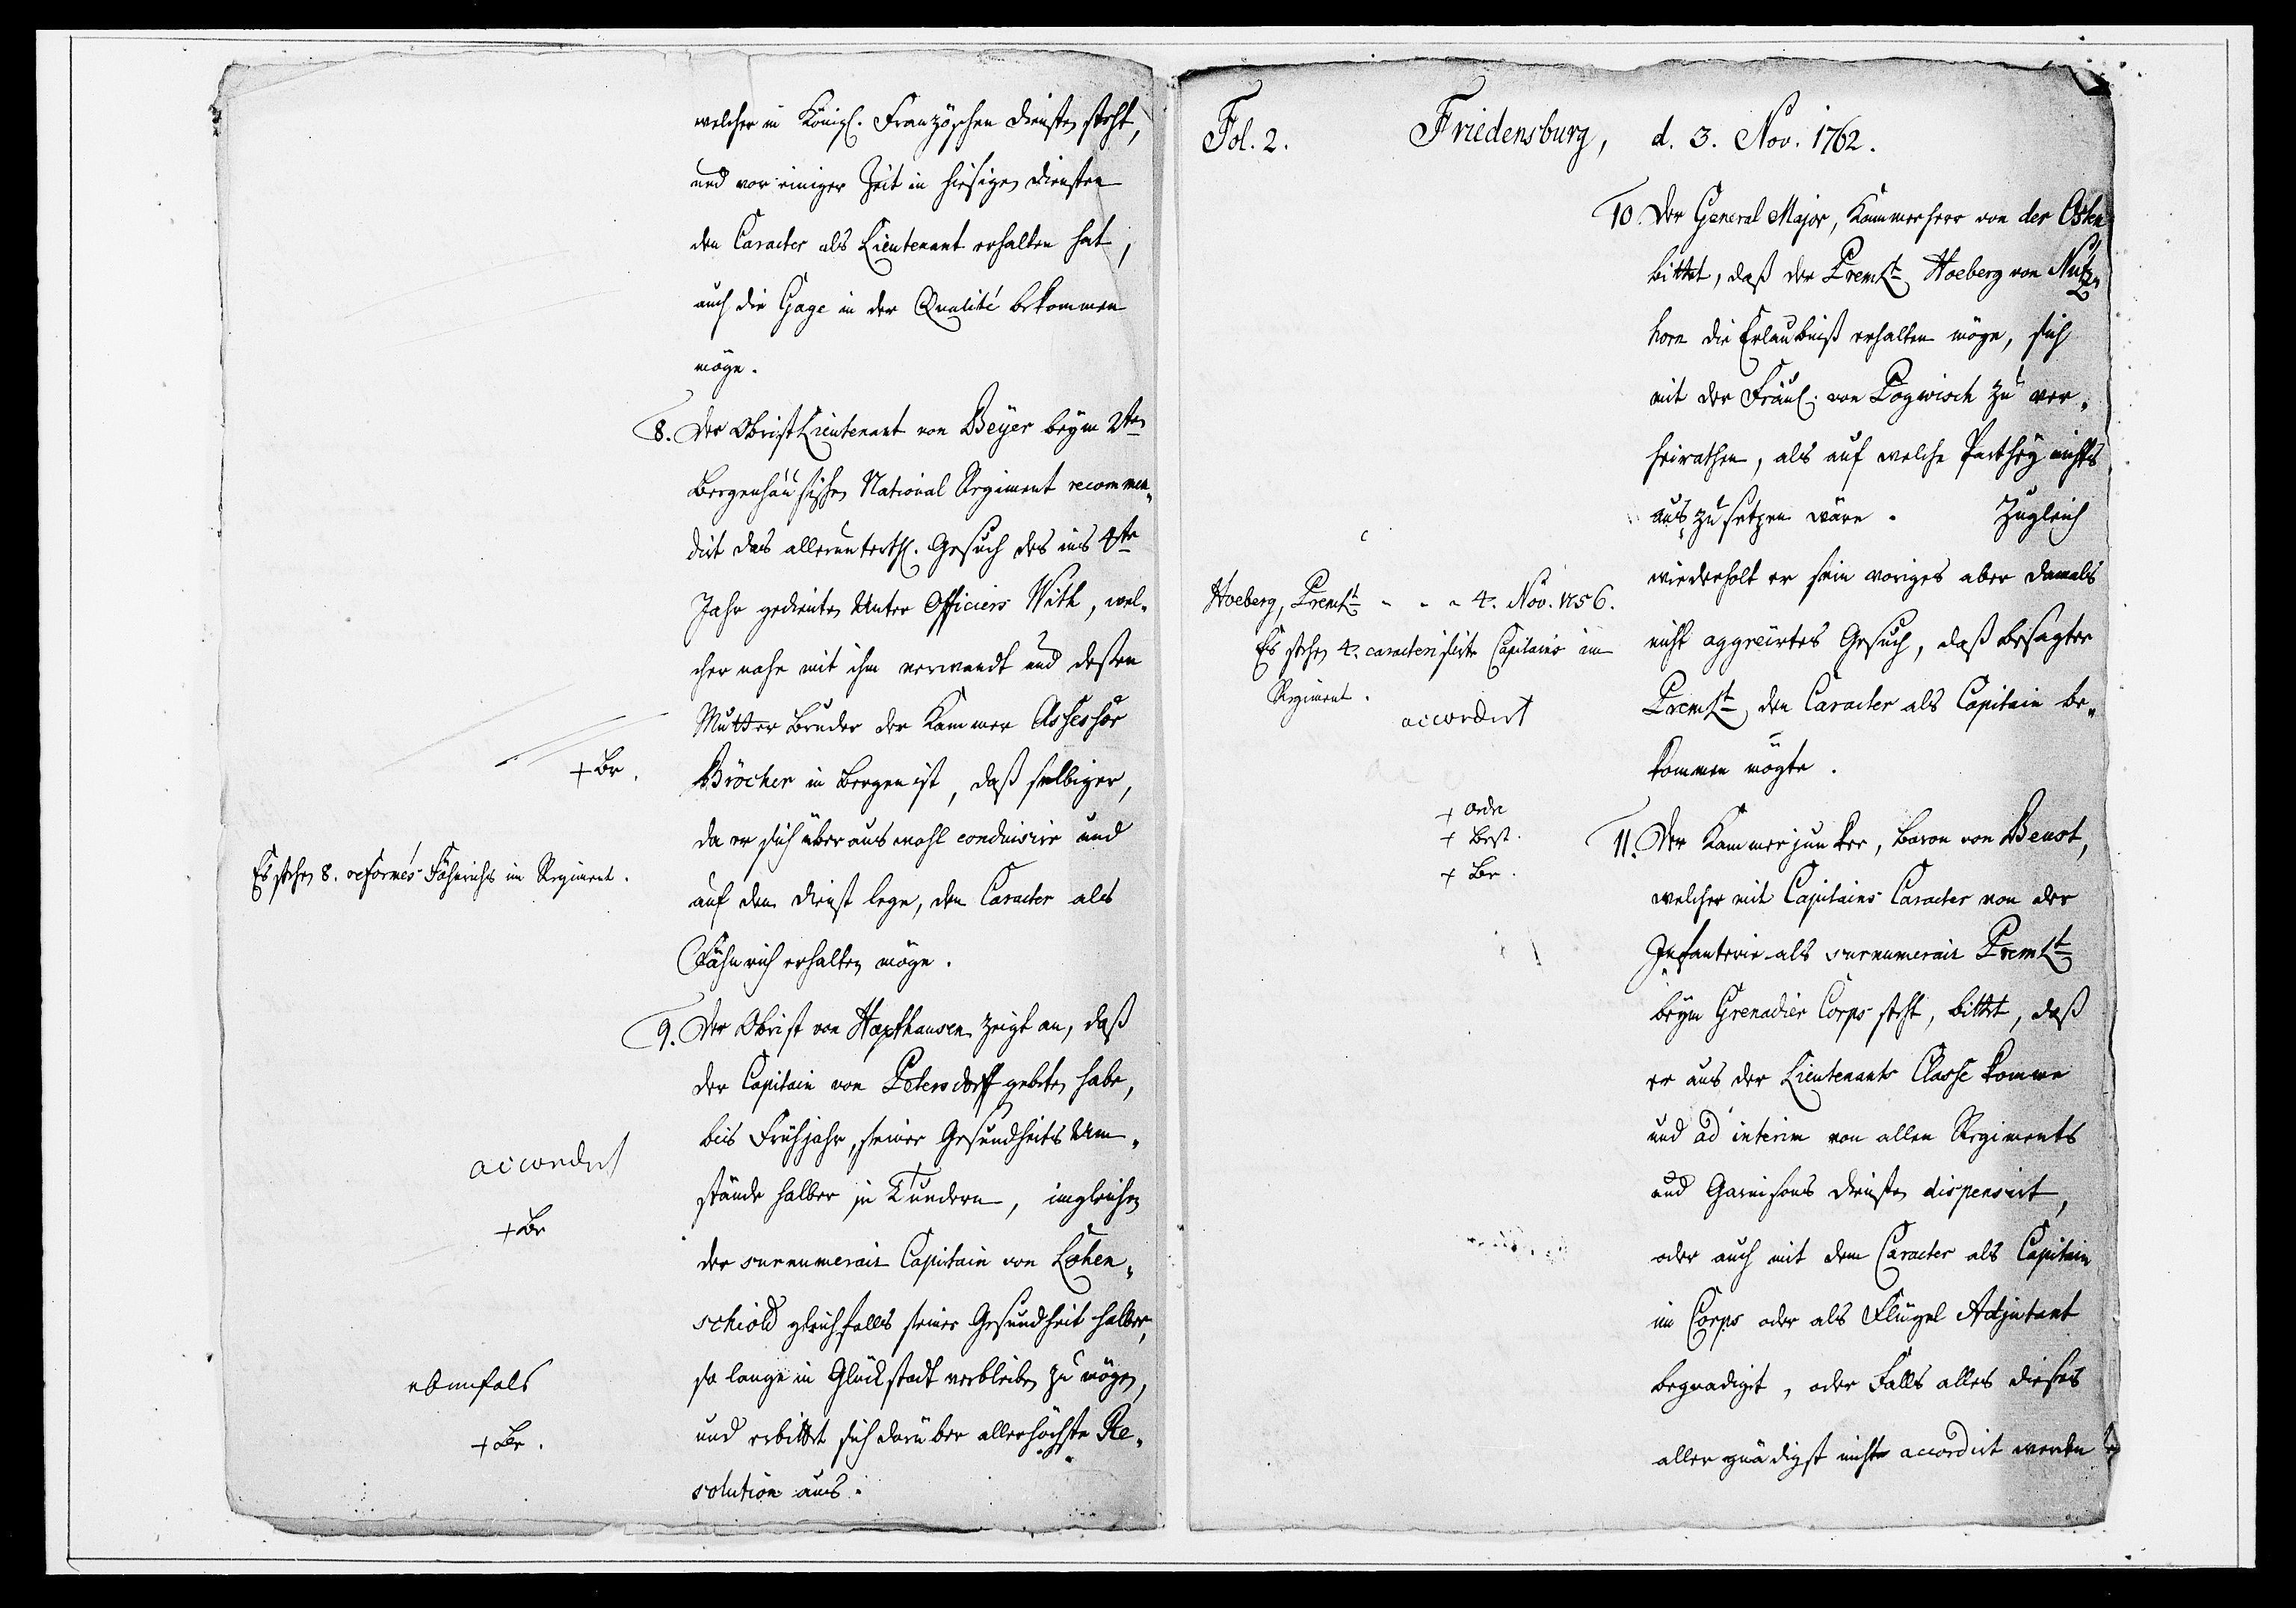 welcher in Königl. Französchen Diensten steht,
und vor einiger Zeit in hiesigen Diensten
den Caracter als Lieutenant erhalten hat,
auch die Gage in der Qualité bekommen
möge.
8. Der Obristlieutenant von Beyer beym 2ten
Bergenhausischen National Regiment recommen„
dirt das allerunterth. Gesuch des ins 4te
Jahr gedienten Unter Officiers With, wel„
cher nahe mit ihm verwandt und dessen
Mutter Bruder der Kammer Assessor
+ Br.
Bröcher in Bergen ist, daß selbiger,
da er sich überaus wohl conduisire und
Es stehen 8. reformés Fähnrichs im Regiment.
auf den Dienst lege, den Caracter als
Fähnrich erhalten möge.
9. Der Obrist von Haxthausen zeigt an, daß
der Capitain von Petersdorff gebeten habe,
bis Frühjahr, seiner Gesundheits Um„
accordirt
stände halber in Tundern, imgleichen
+ Br
der surnumerair Capitain von Löhen„
schiold gleichfalls seiner Gesundheit halber,
ebenfals
so lange in Glückstadt verbleiben zu mögen,
+ Br.
und erbittet sich darüber allerhöchste Re„
solution aus.
Fol. 2. Friedensburg, d. 3. Nov. 1762.
10. Der General Major, Kammerherr von der Osten
bittet, daß der PremLt Hoeberg von Nutz„
horn die Erlaubniß erhalten möge, sich
mit der Fräul. von Pogwisch zu ver„
heirathen, als auf welche Parthey nichts
auszusetzen wäre. Zugleich
wiederholt er sein voriges aber damals
Hoeberg, PremLt - - - 4. Nov. 1756.
Es stehen 4. caracterisirte Capitains im
nicht aggreirtes Gesuch, daß besagter
Regiment.
PremLt den Caracter als Capitain be„
accordirt
kommen mögte.
+ Ordr
+ Best.
11. Der Kammerjunker, Baron von Beust,
+ Br.
welcher mit Capitains Caracter von der
Infanterie als surnumerair PremLt
beym Grenadier Corps steht, bittet, daß
er aus der Lieutenants Classe komme
und ad interim von allen Regiments
und Garnisons Diensten dispensirt,
oder auch mit dem Caracter als Capitain
im Corps oder als Flügel Adjutant
begnadigt, oder Falls alles dieses
allergnädigst nicht accordirt werden